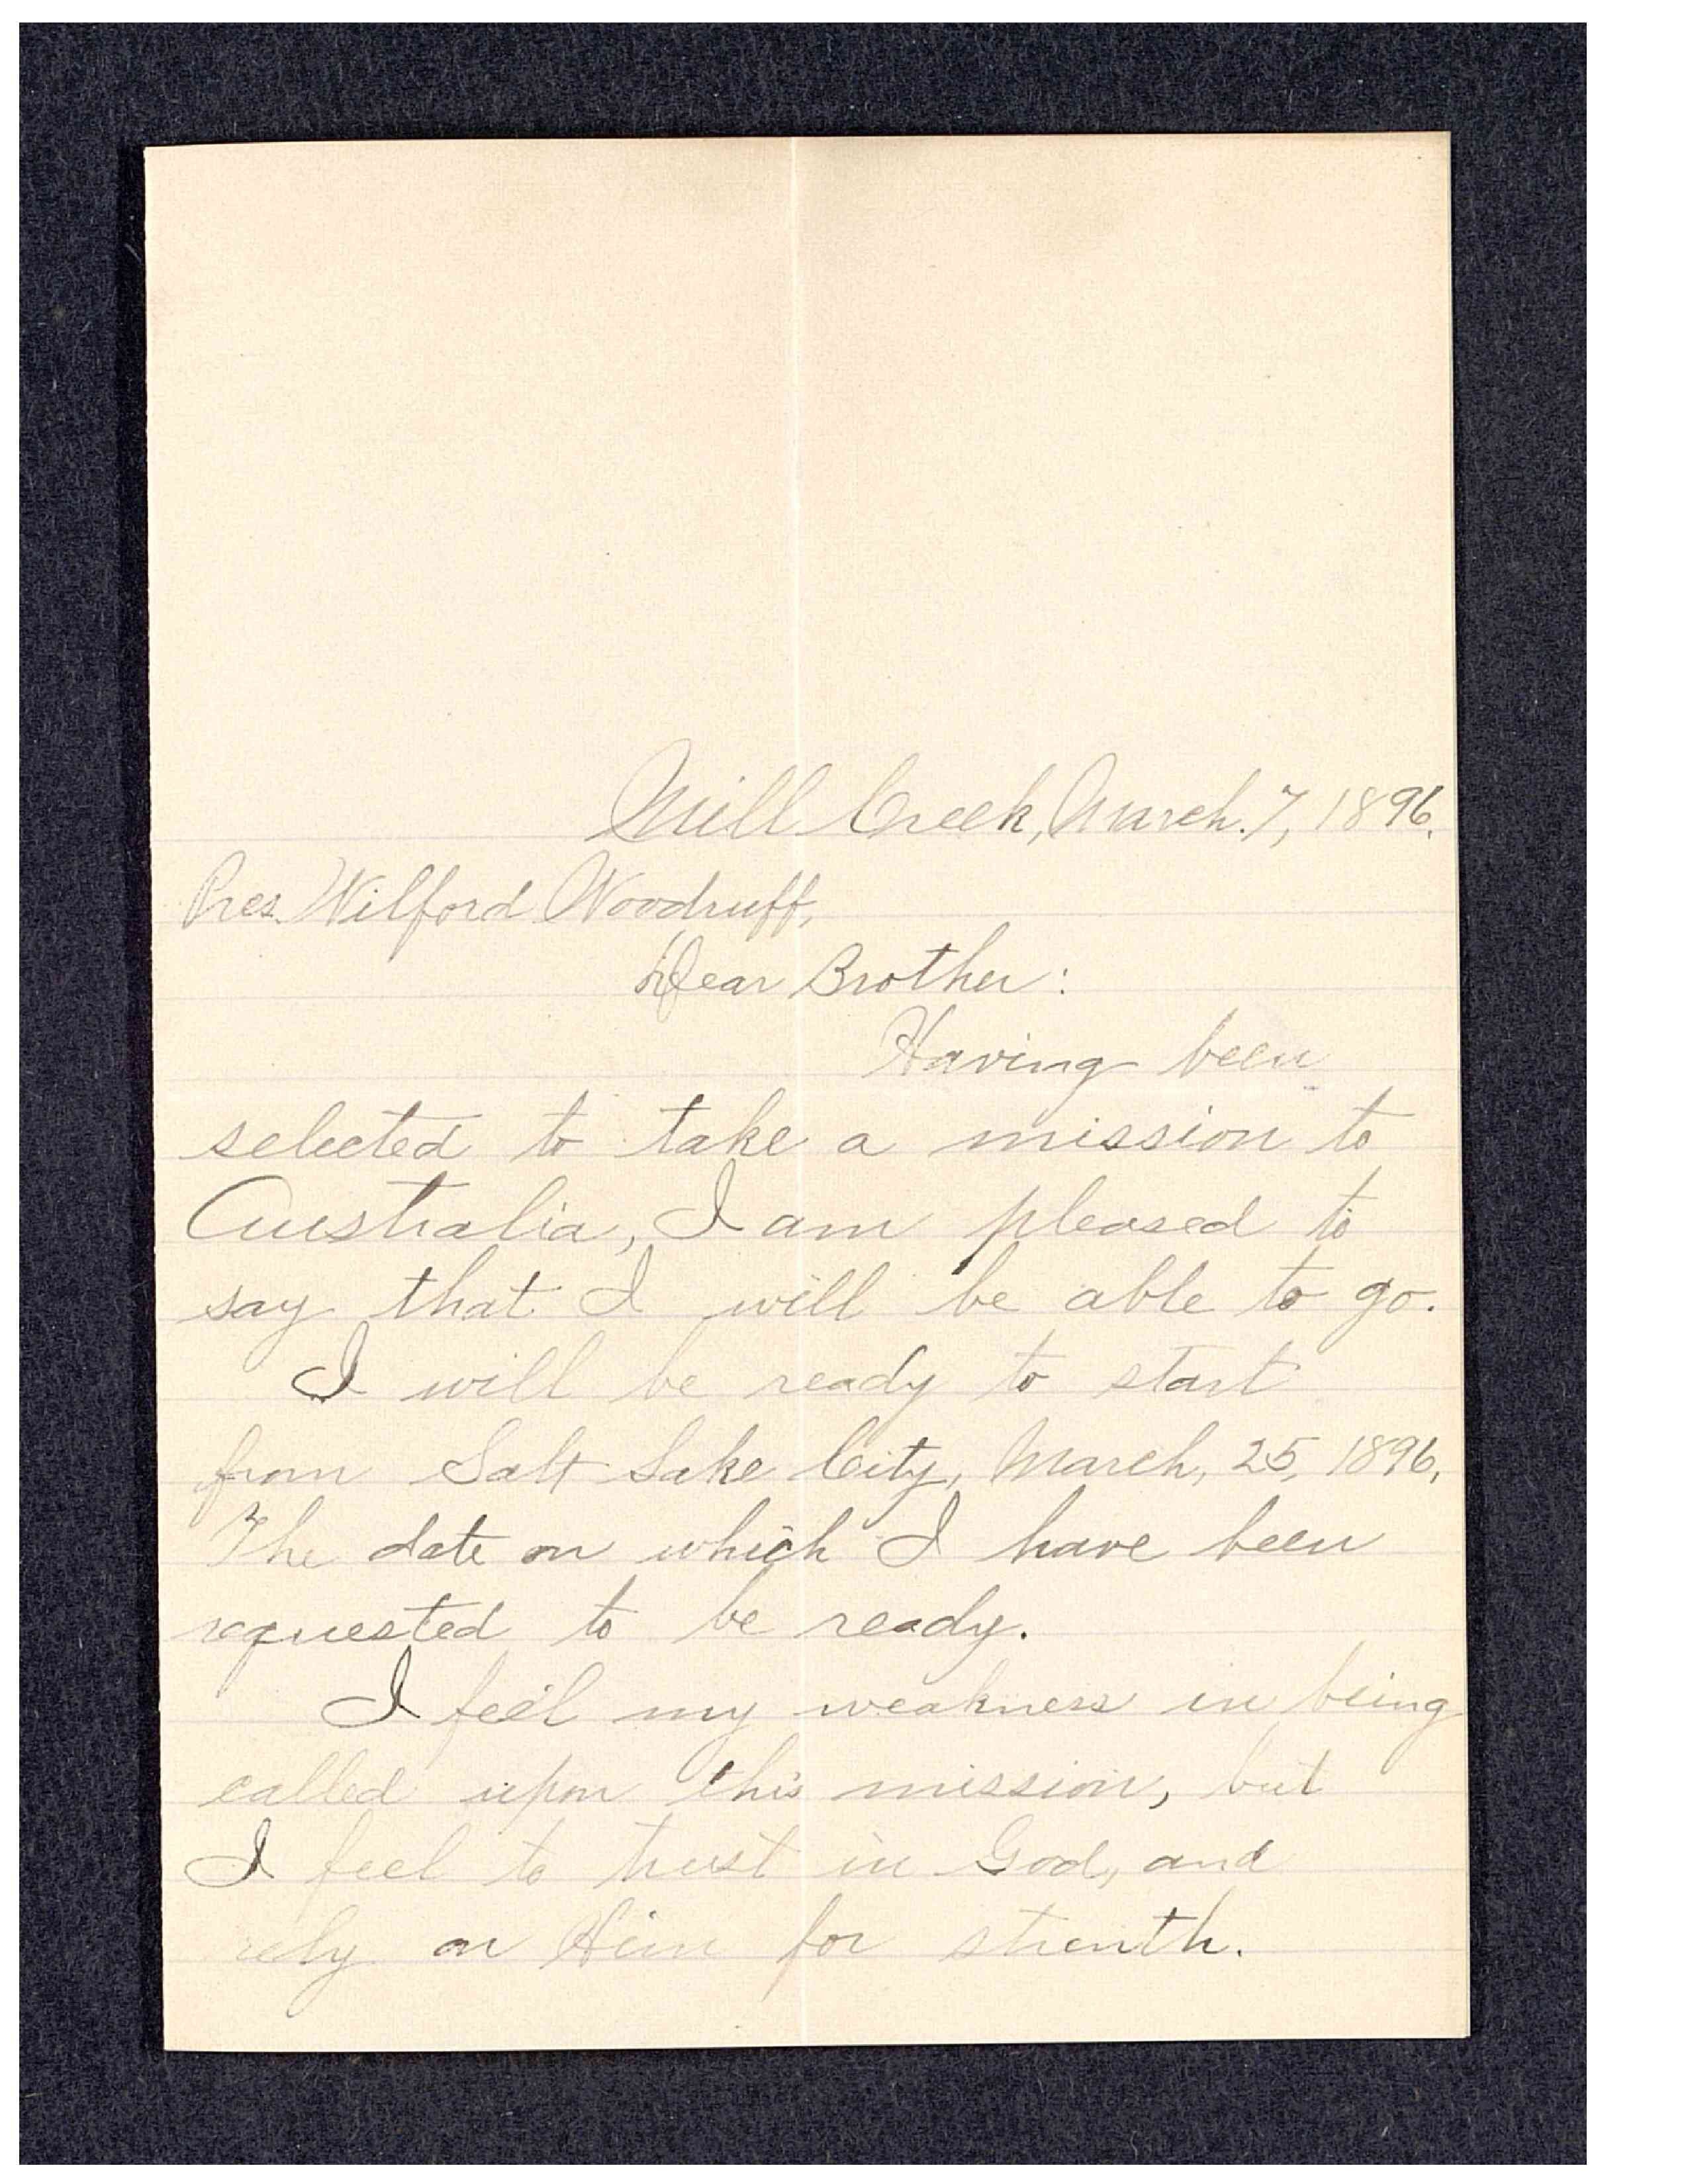 Mill Creek, March. 7, 1896.
Pres. Wilford Woodruff,
Dear Brother:
Having been
selected to take a mission to
Australia, I am pleased to
say that I will be able to go.
I will be ready to start
from Salt Lake City, March, 25, 1896,
The date on which I have been
requested to be ready.
I feel my weakness in being
called upon this mission, but
I feel to trust in God, and
rely on Him for strenth.